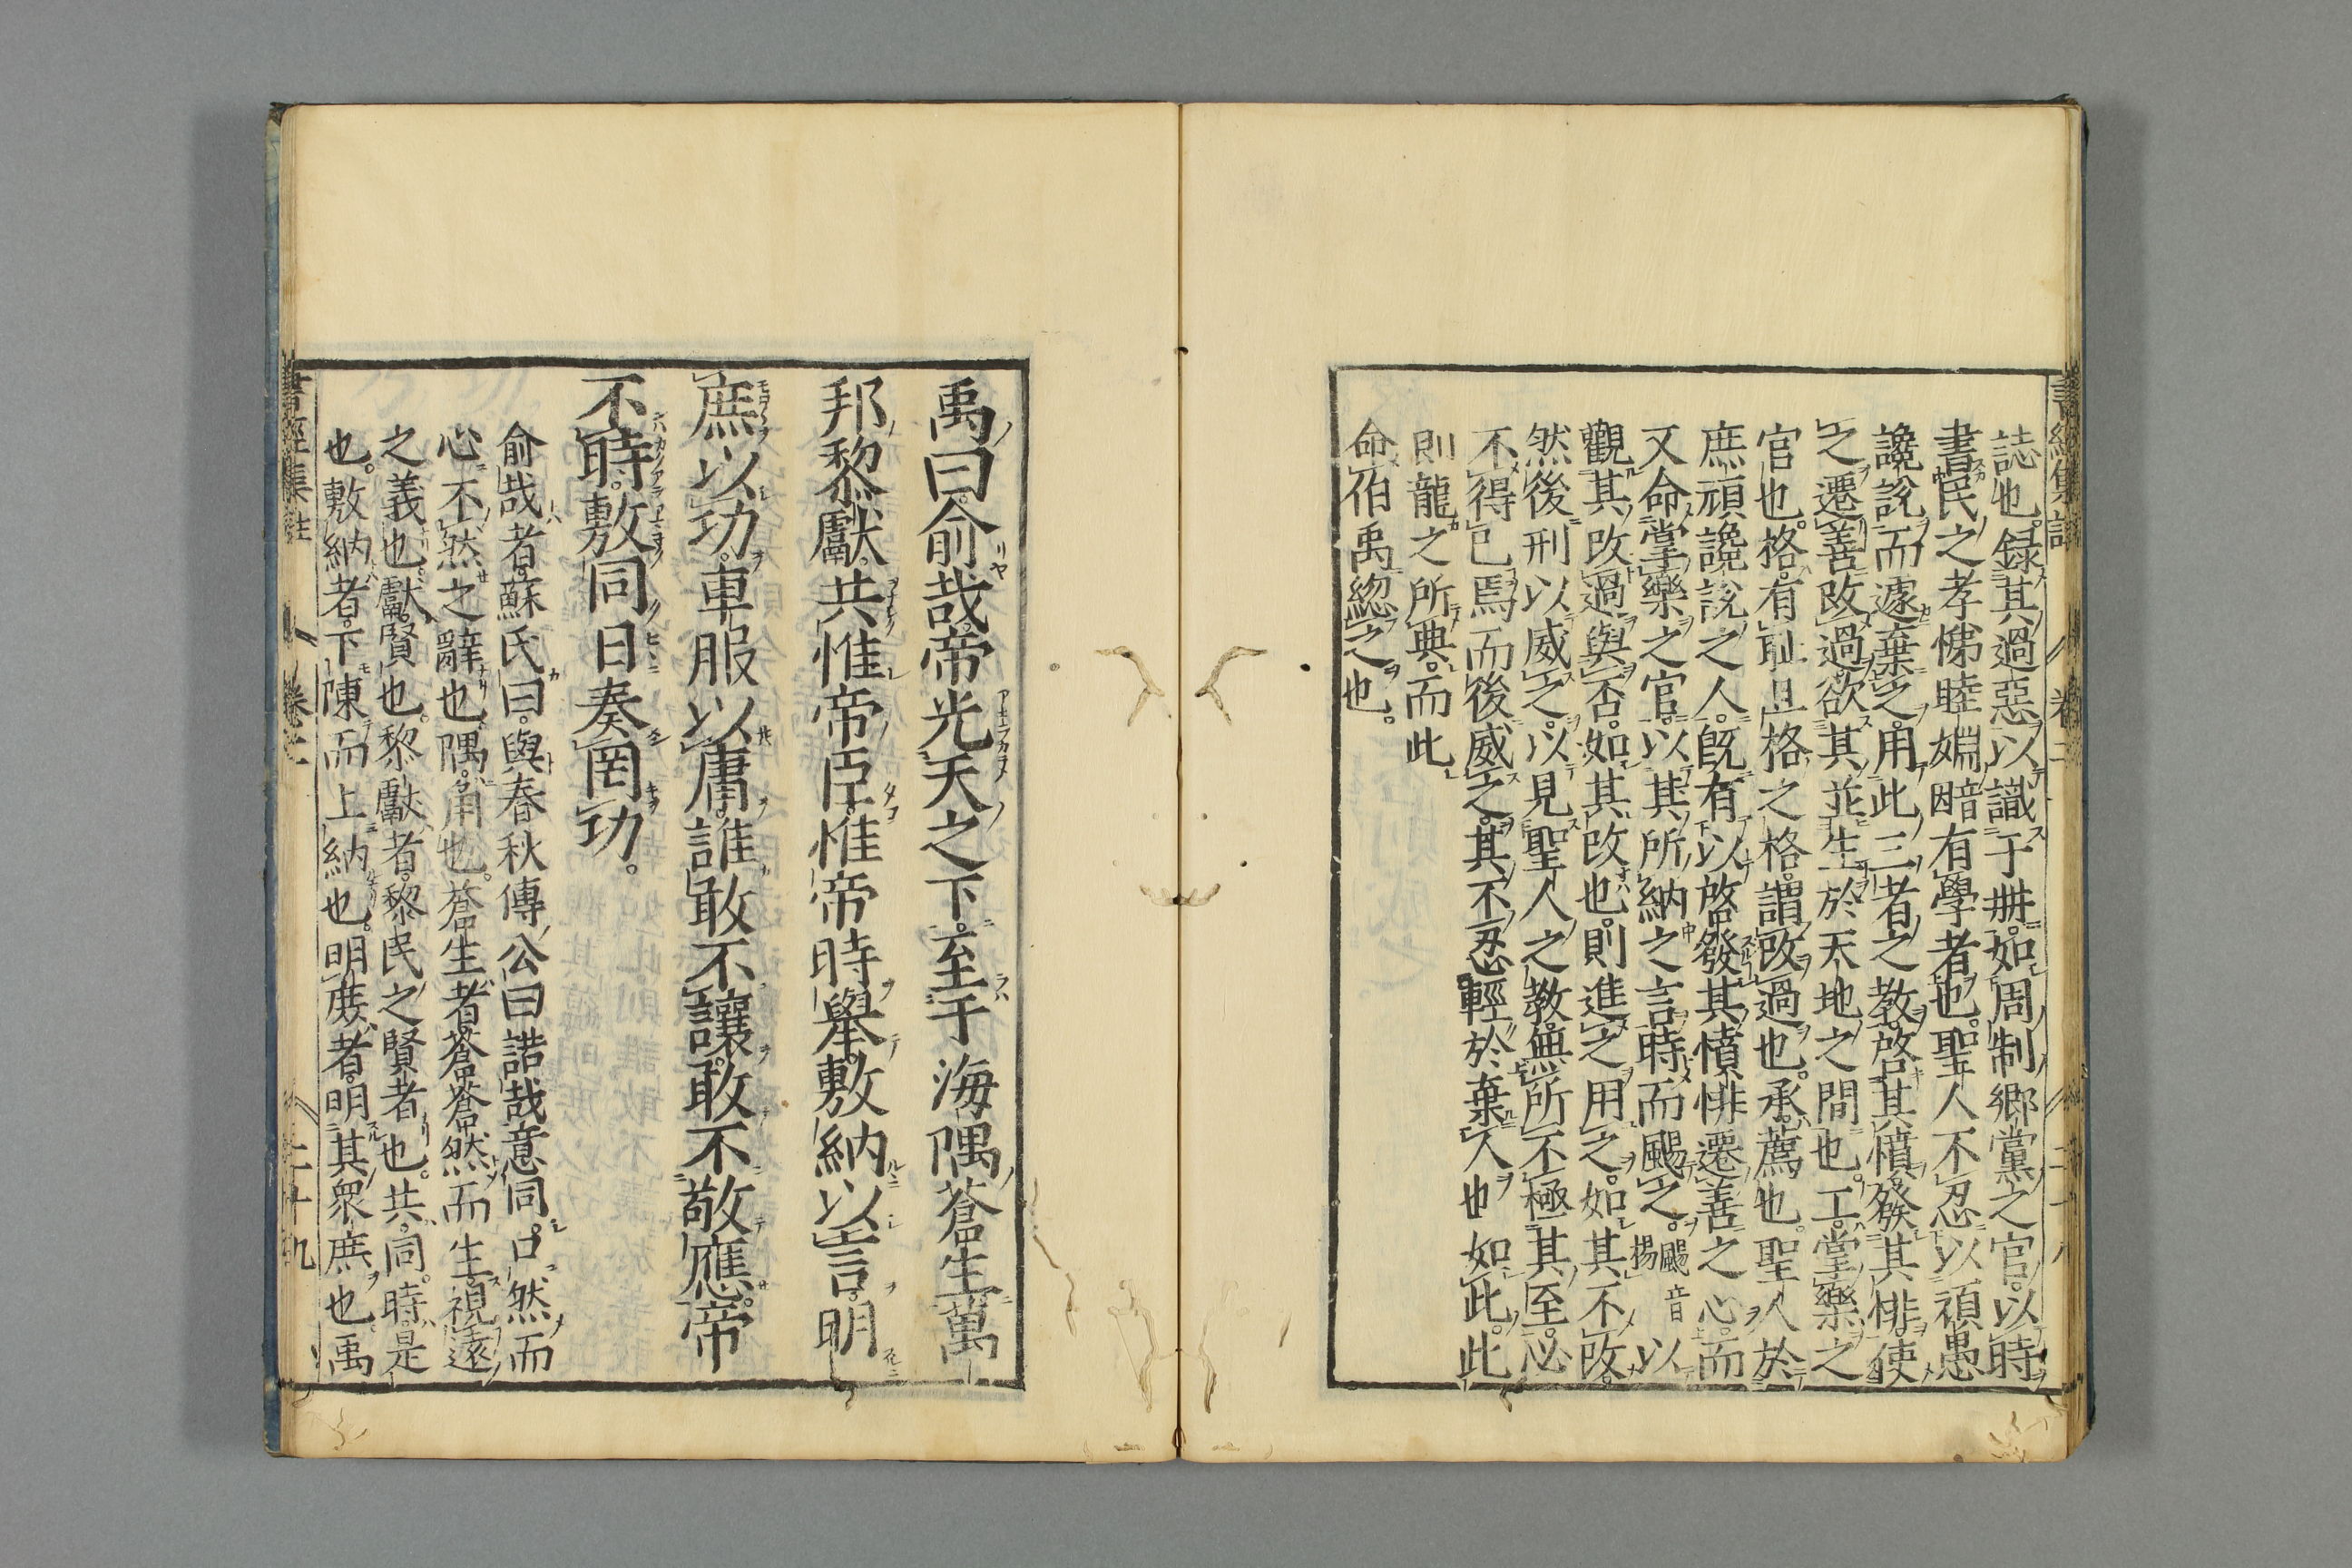 誌也。録其過惡以識于冊。如周制鄕黨之官。以時
書民之孝悌睦婣有學者也。聖人不忍以頑愚
讒說而遽棄之。用此三者之敎。啓其憤。發其悱。使
之遷善改過。欲其並生於天地之間也。工。掌樂之
官也。格。有耻且格之格。謂改過也。承。薦也。聖人於
庶頑讒說之人。旣有以啓發其憤悱遷善之心。而
又命掌樂之官。以其所納之言。時而颺之。颺音揚 以
觀其改過與否。如其改也。則進之用之。如其不改。
然後刑以威之。以見聖人之敎。無所不極其至。必
不得已焉而後威之。其不忍輕於棄人也如此。此
則龍之所典。而此
命伯禹緫之也。
禹曰。俞哉。帝光天之下。至于海隅蒼生。萬
邦黎獻。共惟帝臣。惟帝時舉。敷納以言。明
庶以功。車服以庸。誰敢不讓。敢不敬應。帝
不時。敷同日奏罔功。
俞哉者。蘇氏曰。與春秋傳公曰諾哉意同。口然而
心不然之辭也。隅。角也。蒼生者。蒼蒼然而生。視遠
之義也。獻。賢也。黎獻者。黎民之賢者也。共。同。時。是
也。敷納者。下陳而上納也。明庶者。明其衆庶也。禹
書經集註 卷二 二十九